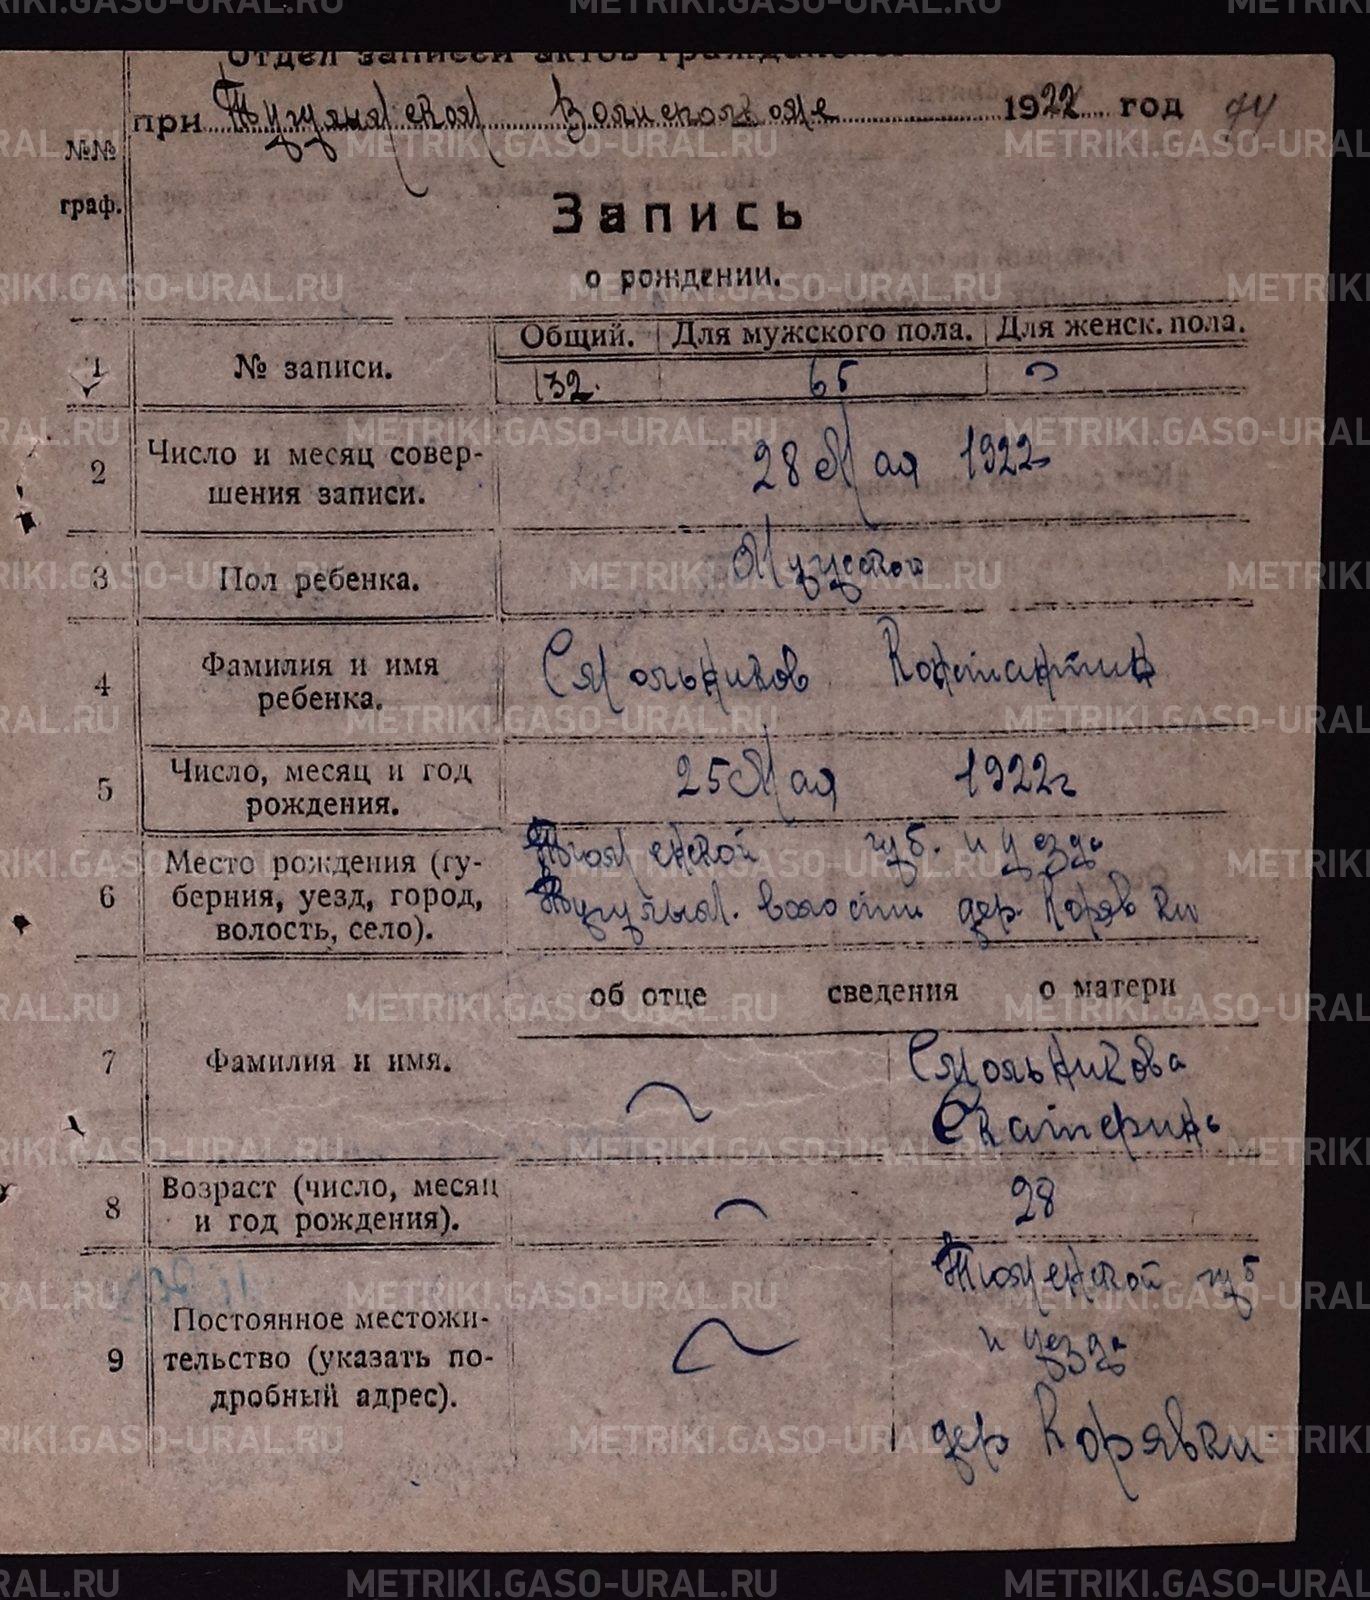 Отдел записси актов гражданс
при Тугулымском Волисполкоме 1922 год 74
№№
граф.
Запись
о рождении.
Общий. Для мужского пола. Для женск. пола.
1 № записи. 132. 65
2 Число и месяц совер-
шения записи. 28 Мая 1922
3 Пол ребенка. Мужской
4 Фамилия и имя
ребенка. Смольников Константин
5 Число, месяц и год
рождения. 25 Мая 1922г
6 Место рождения (гу-
берния, уезд, город,
волость, село). Тюменской губ. и уезда
Тугулым. волости дер. Корявки
об отце сведения о матери
7 Фамилия и имя. Смольникова
Екатерина
8 Возраст (число, месяц
и год рождения). 28
9 Постоянное местожи-
тельство (указать по-
дробный адрес). Тюменской губ
и уезда
дер Корявки
METRIKI.GASO-URAL.RU